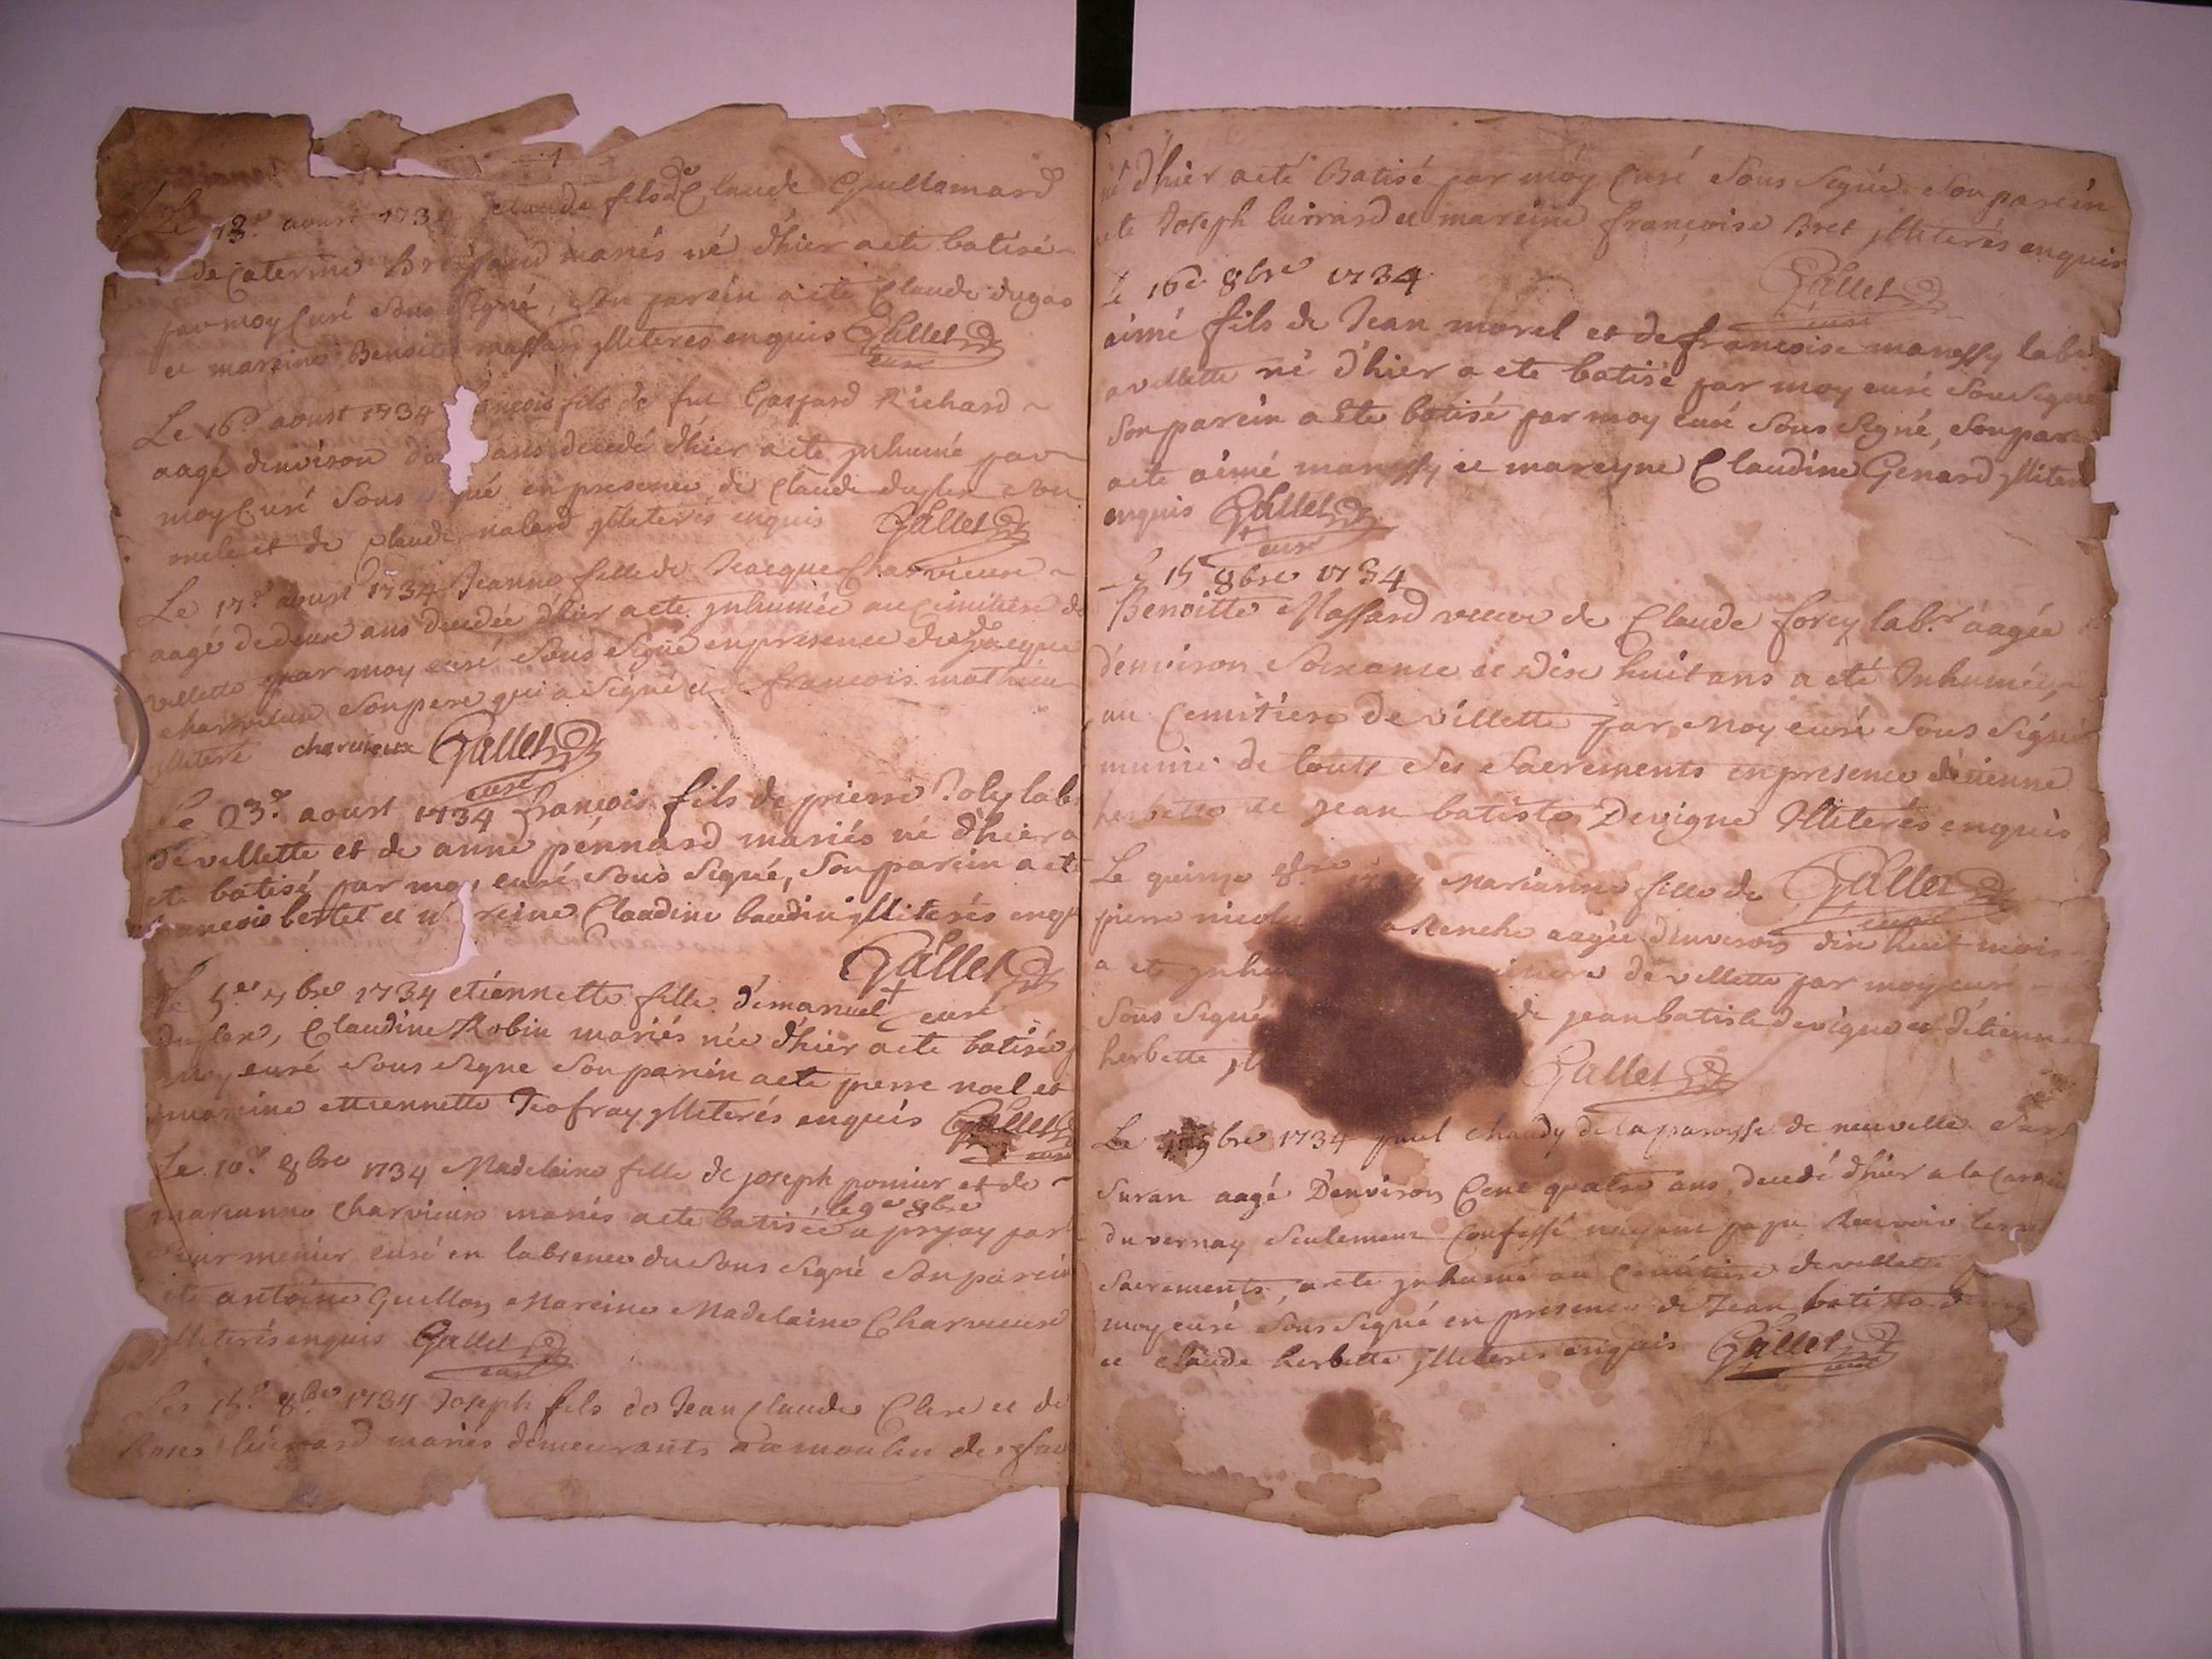 Le 13e aoust 1734 Claude fils de Claude Guillamard
de Caterine mariés né d'hier a ete batisé
par moy Curé sous signé, son parein a eté Claude dugas
et mareine Benoite massard illiterés enquis Gallet curé
Le 16e aoust 1734 ançois fils de feu Gaspard Richard
aagé d'environ ans decedé d'hier a ete inhumé par
moy Curé sous gné en presence de Claude duplex son
oncle et de Claude nalard illiterés enquis Gallet
Le 17e aoust 1734 Jeanne fille de Jacque Charvieux
aagé de deux ans decedée d'hier a ete inhumée au cimitiere de
villette par moy curé sous signé en presence dudt Jacque
charvieux son pere qui a signé et de francois mathieu
illiteré charvieux Gallet curé
Le 23e aoust 1734 françois fils de pierre Poly lab
de villette et de anne pénnard mariés né d'hier a
ete batisé par moy curé sous signé, son parein a ete
francois bertet et m reine Claudine baudin illiterés enqu
Gallet curé
Le 5e 7bre 1734 etiénnette fille d'emanuel
duplex, Claudine Robin mariés née d'hier a ete batisée
moy curé sous signe son parein a ete pierre noel et
mareine ettiennette Jeofray illiterés enquis Gallet curé
Le 10e 8bre 1734 Madelaine fille de joseph ponier et de
marianne Charvieux mariés a ete batisée le 9e 8bre a priay par
sieur menier curé en l'absence du sous signé son parein
ete antoine Guillon Mareine Madelaine Charvieux
illiterés enquis Gallet curé
Le 15e 8bre 1734 Joseph fils de Jean Claude Clerc et de
Rose mariés demeurants au moulin de
né d'hier a eté Batisé par moy Curé sous signé son parein
ete Joseph et mareine françoise Bret illiterés enquis
Gallet curé
Le 16e 8bre 1734
aimé fils de Jean morel et de francoise manessy lab
a villette né d'hier a ete batisé par moy curé sousigné
son parein a ete batisé par moy curé sous signé, son par
a ete aimé manessy et mareyne Claudine Genard illiter
enquis Gallet curé
Le 15 8bre 1734
Benoitte Massard veuve de Claude forey labr aagée
d'environ soixante et dix huit ans a eté Inhumée,
au Cemitiere de villette par Moy curé sous signé
munie de touts ses sacrements en presence d'etienne
herbette et jean batiste Devigne Illiterés enquis
Le quinze 8bre Marianne fille de Gallet curé
pierre Renche aagée d'environ dix huit mois
a ete inhu tiere de villette par moy curé
sous signé de jean batiste devigne et d'etienn
herbette il Gallet
Le 9bre 1734 paul chaudy de la paroisse de neuvelle sur
suran aagé D'environ Cent quatre ans, decedé d'hier a la
du vernay seulement Confessé nayant pas pu Recevoir les
sacrements, a ete inhumé au Cemitiere de villette
moy curé sous signé en presence de Jean batiste
et Claude herbette illiterés enquis Gallet curé